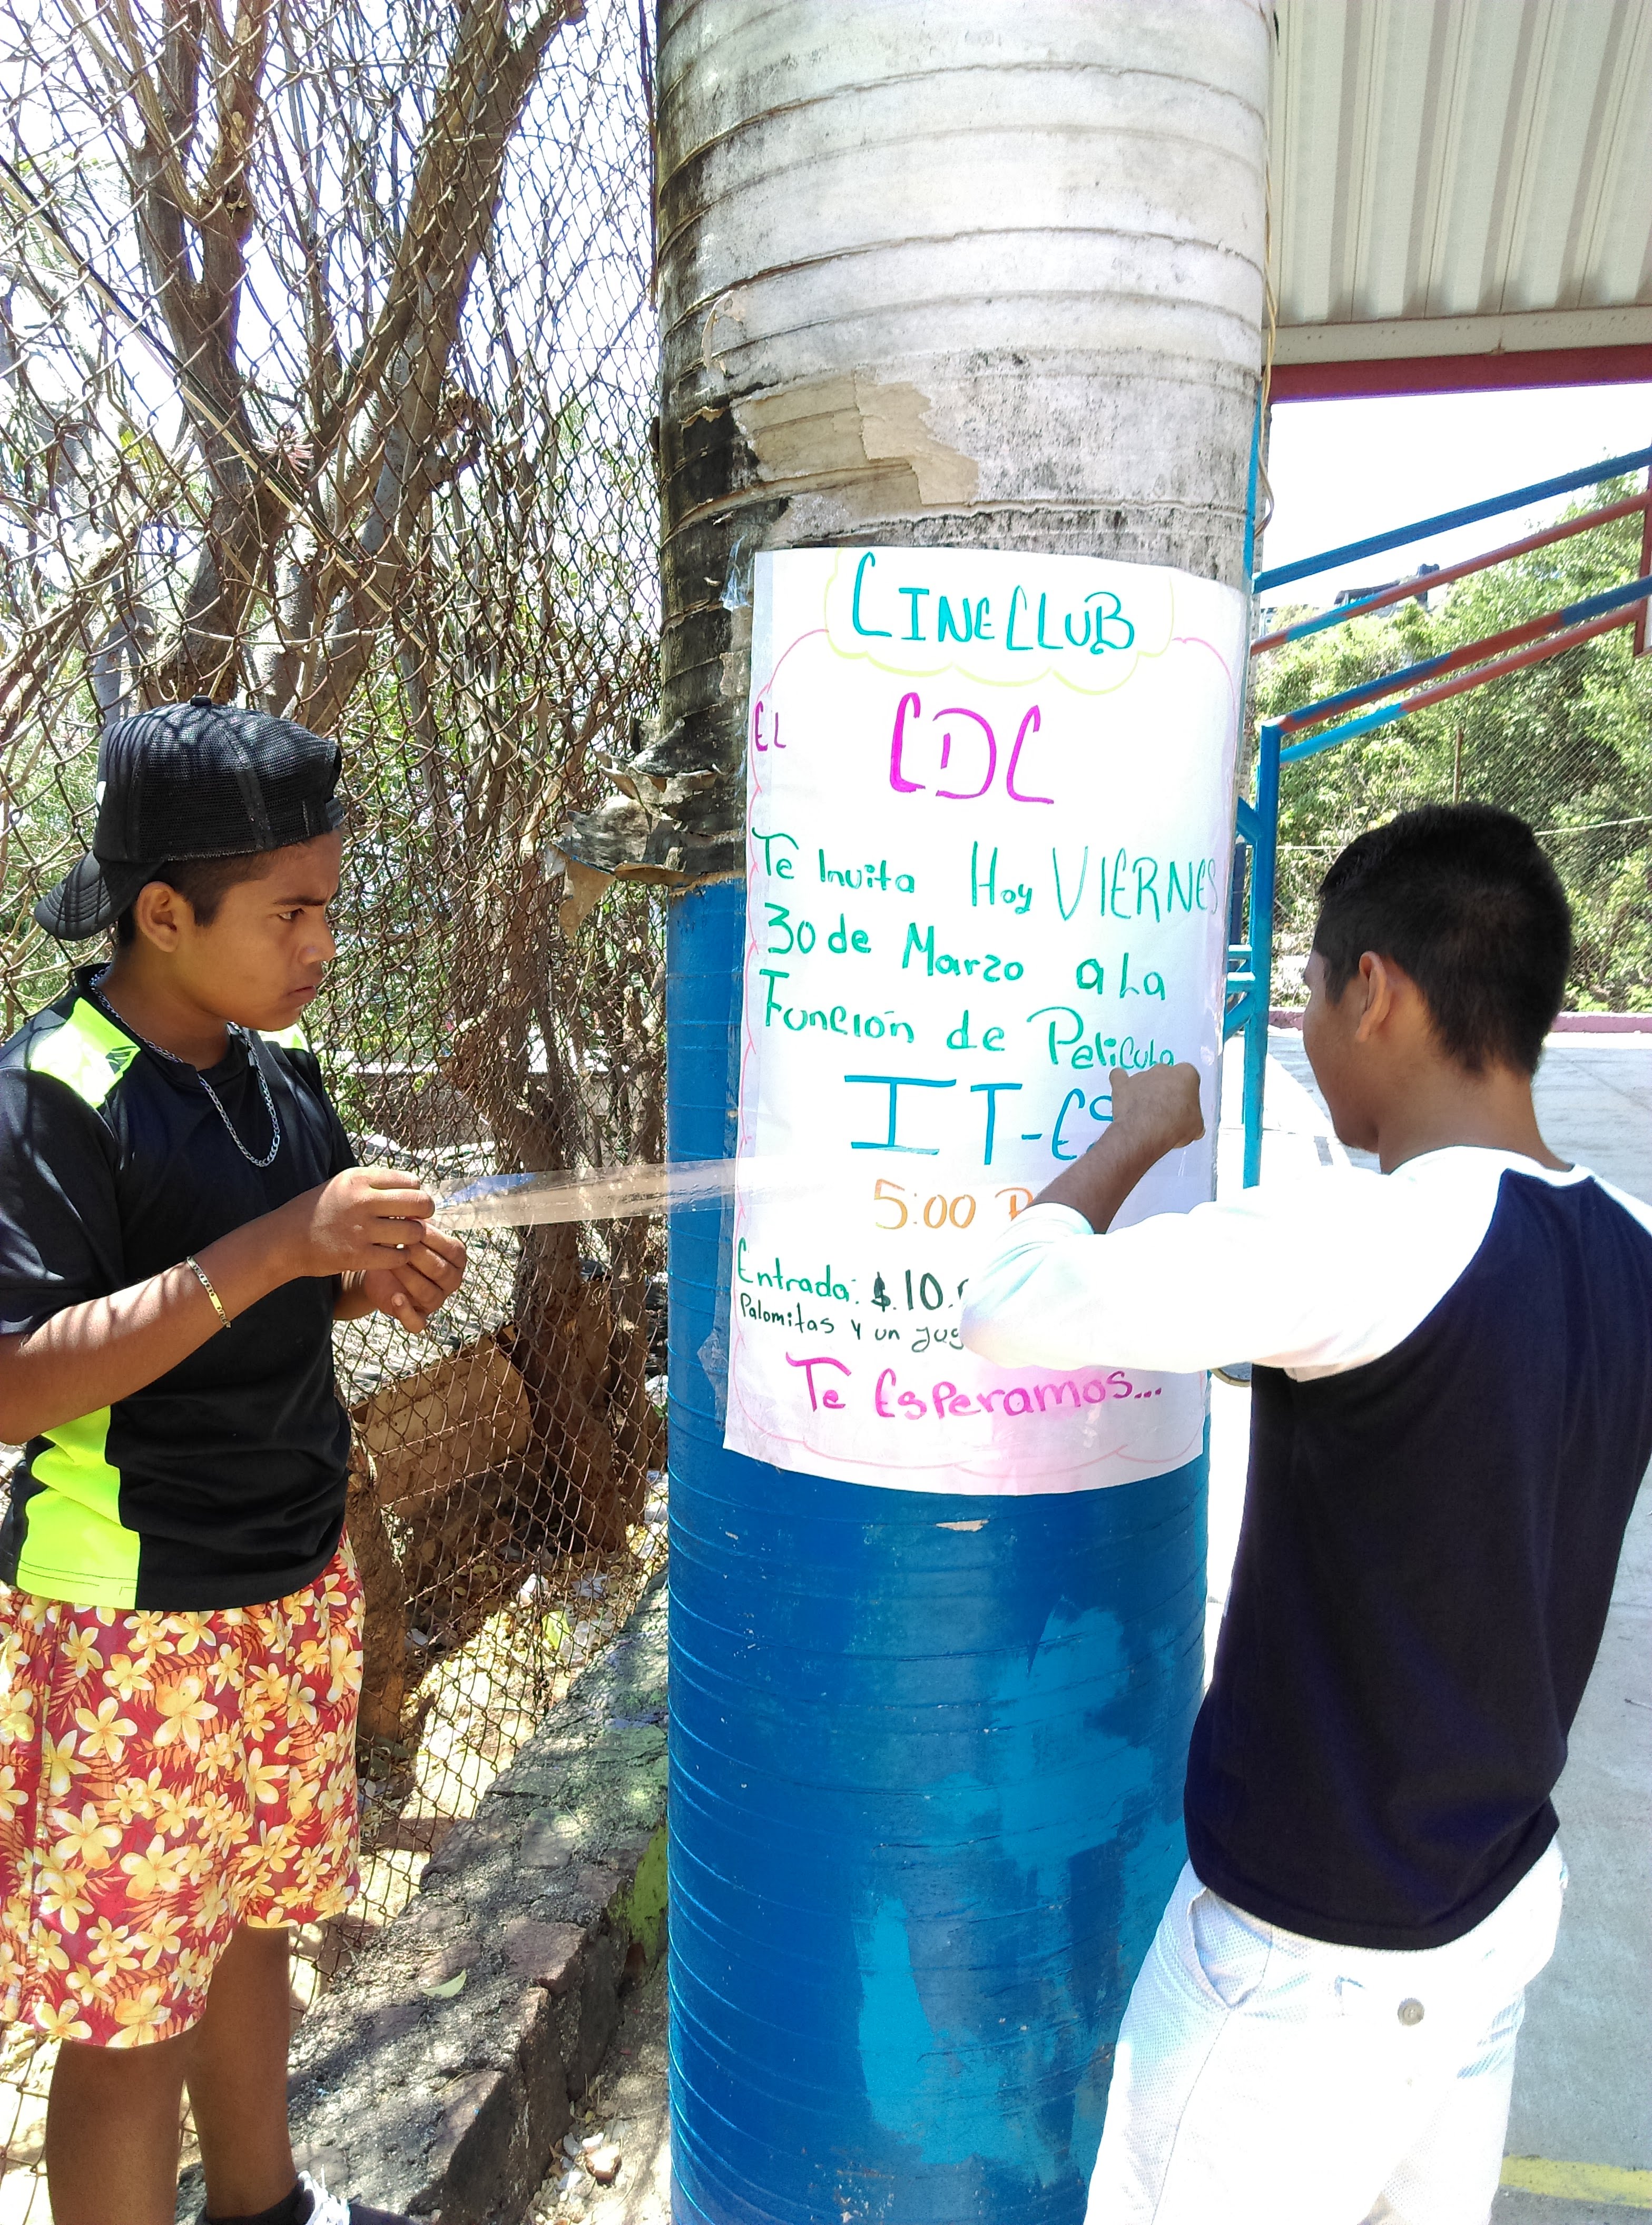 CINECLUB
EL CDC
Te Invita Hoy VIERNES
30 de Marzo a La
Función de Pelicula
IT-ES
5:00
Entrada: $.10.
Palomitas y un
Te Esperamos...